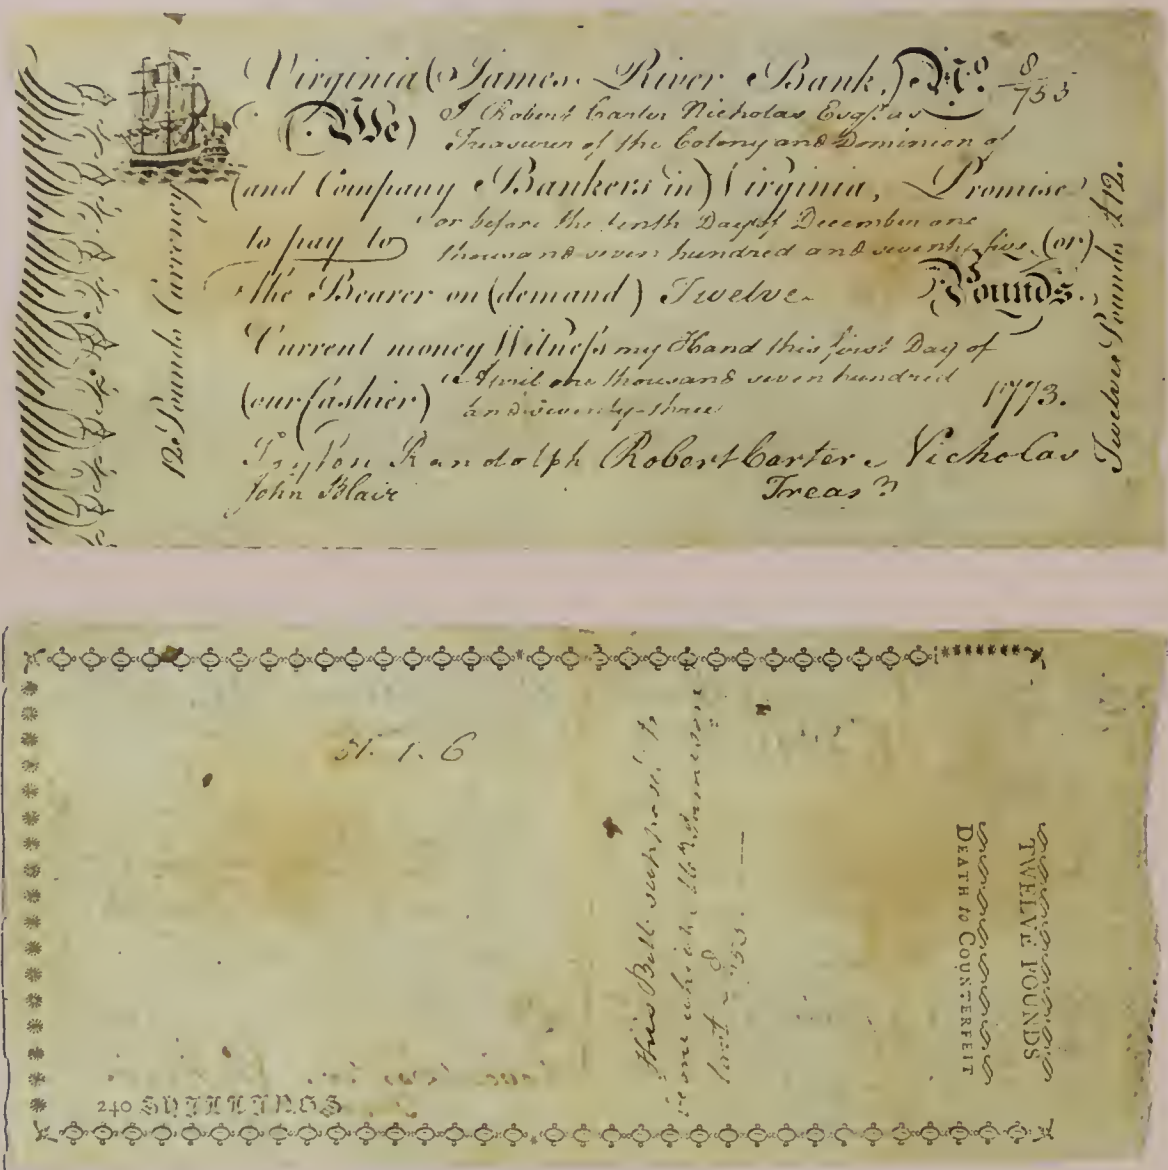 Virginia (James River Bank,) No. 8/753
(We) I Robert Carter Nicholas Esqr. as
Treasurer of the Colony and Dominion of
(and Company Bankers in) Virginia, Promise
or before the tenth Day of December one
to pay to
thousand seven hundred and seventy-five (or)
the Bearer on (demand) Twelve Pounds.
Current money Witness my Hand this first Day of
April one thousand seven hundred
(our Cashier) 1773.
and seventy-three
Peyton Randolph Robert Carter Nicholas
John Blair Treasr.
12 Pounds Currency
Twelve Pounds £12.
1. 6
this Bill to
lost 8/753.
TWELVE POUNDS
DEATH to COUNTERFEIT
240 SHILLINGS